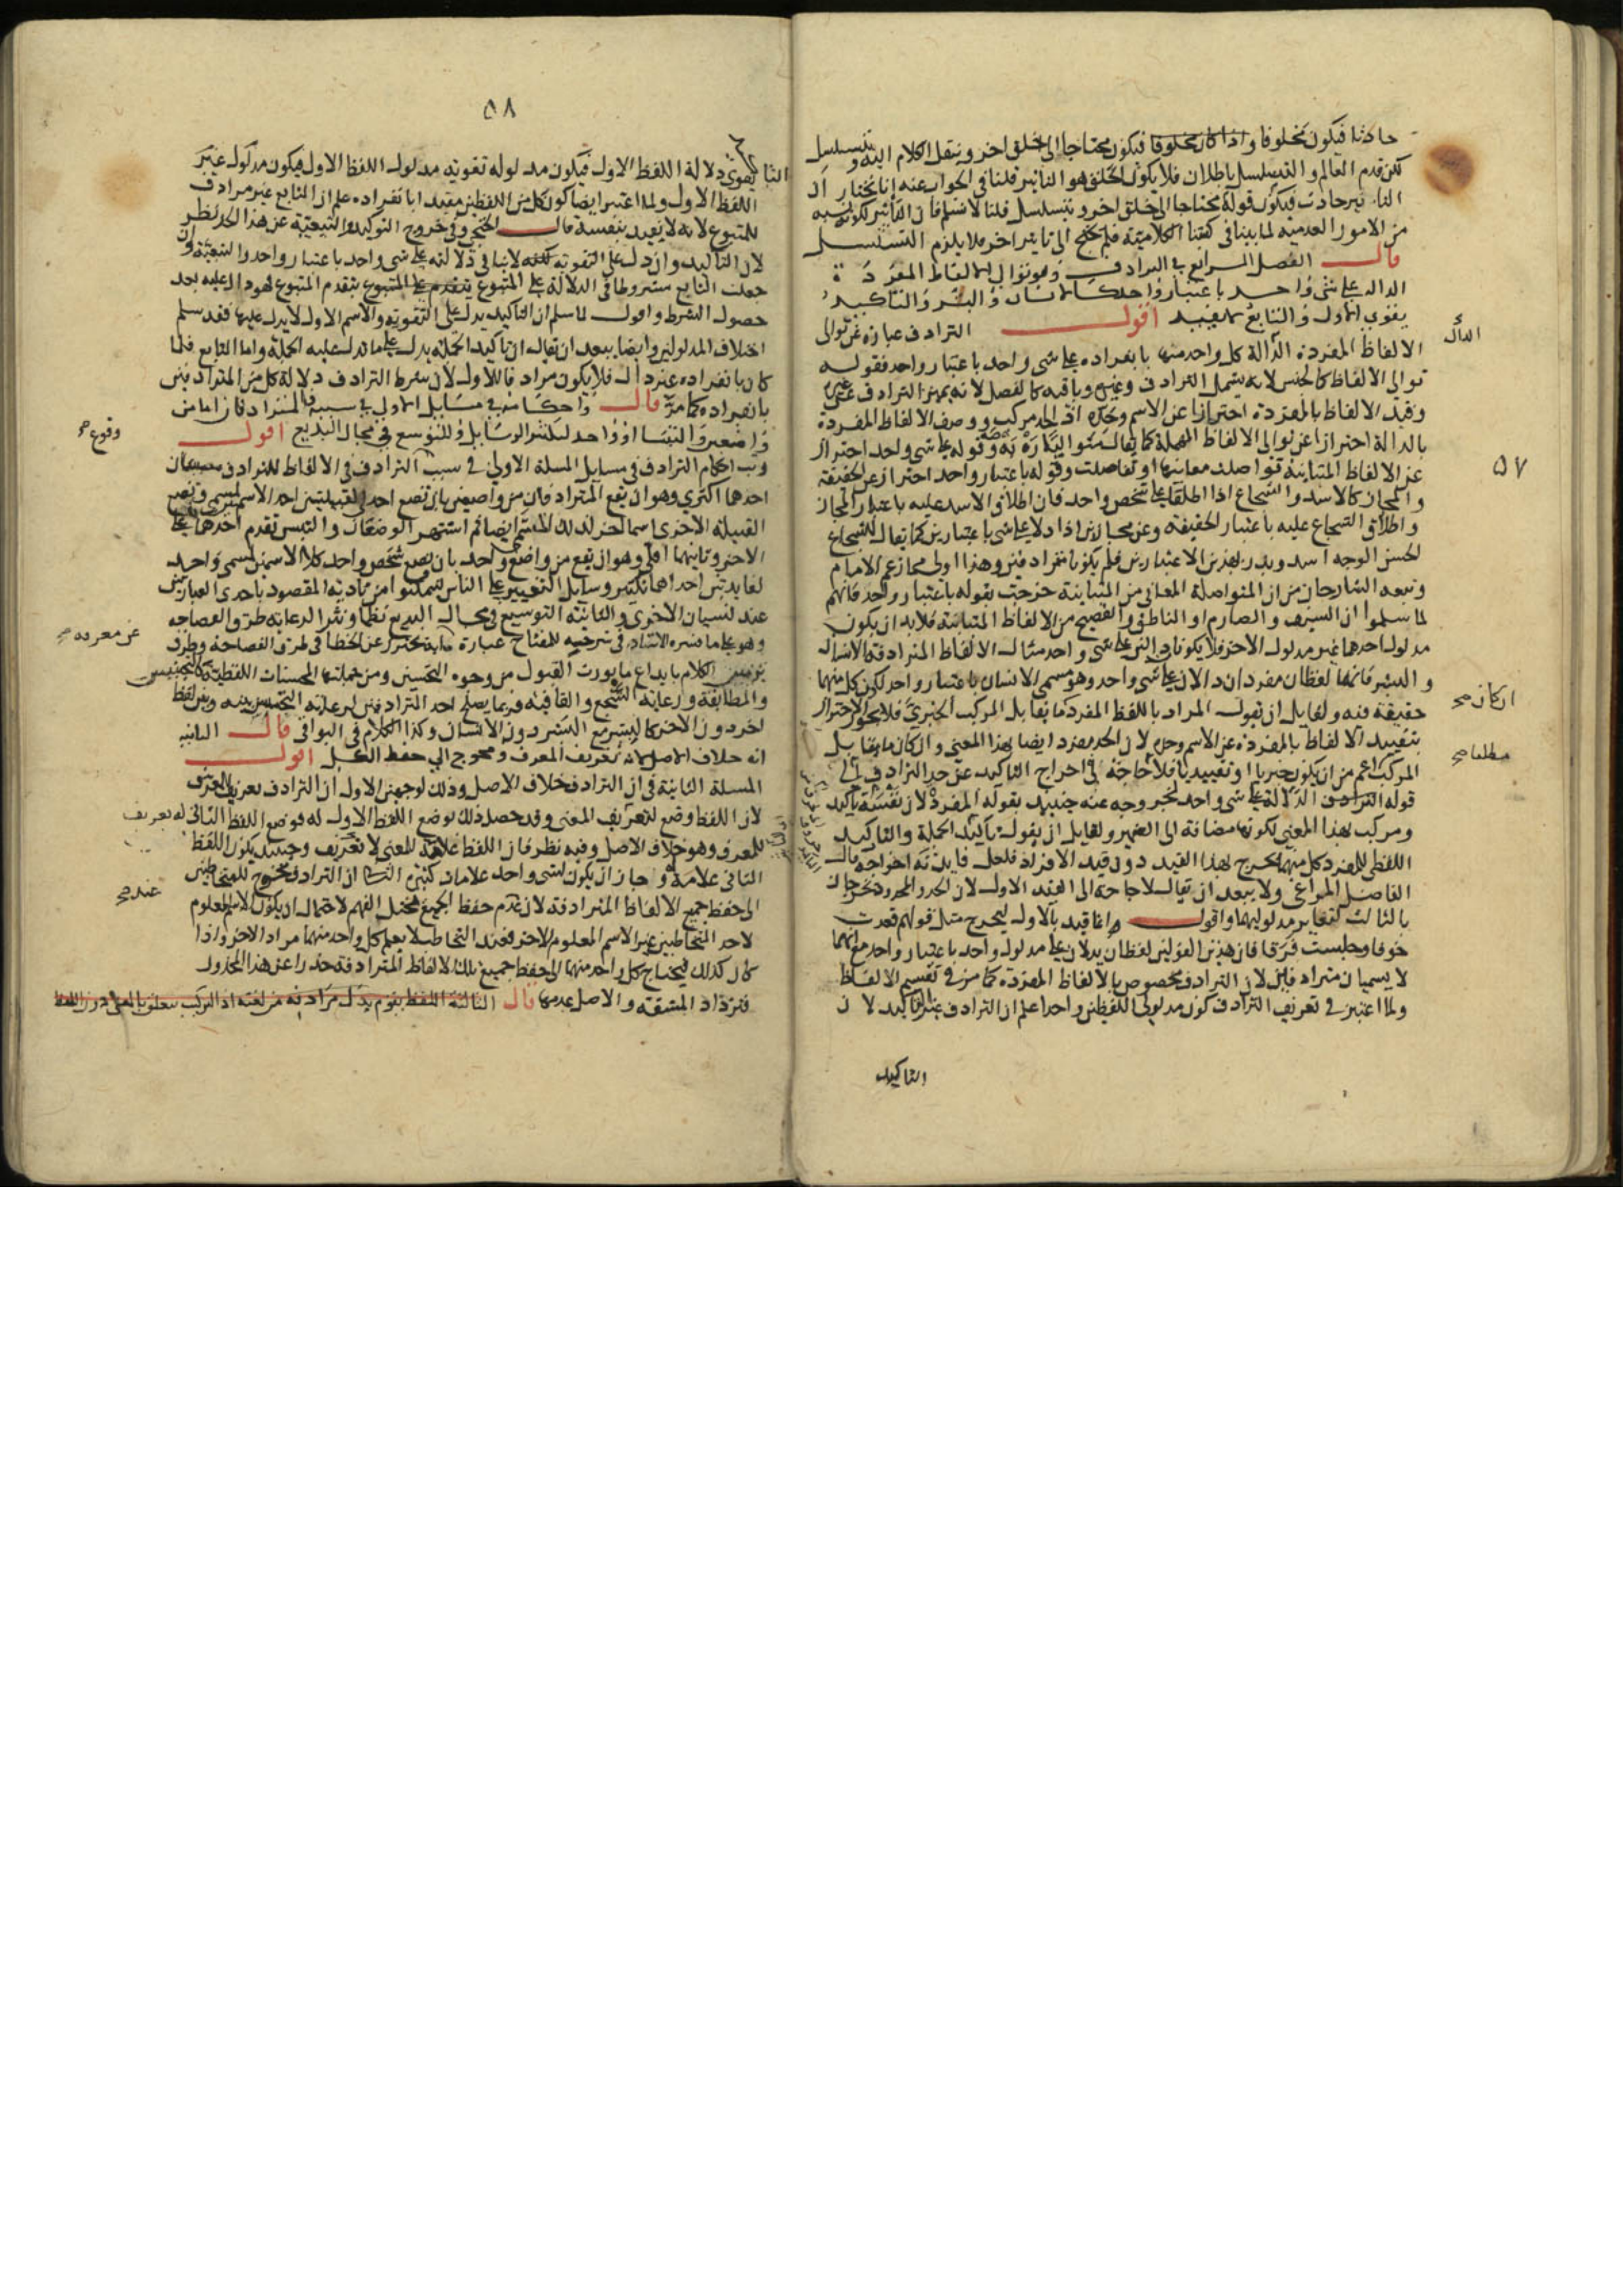 حادثا فيكون مخلوقا واذا كان مخلوقا فيكون محتاجا الى خلق اخر وينقل الكلام اليه ويتسلسل
لكن قدم العالم والتسلسل باطلان فلا يكون الخلق هو التاثير قلنا في الجواب عنه انا نختار ان
التاثير حادث فيكون قوله محتاجا الى خلق اخر ويتسلسل قلنا لا نسلم فان التاثير لكونه نسبة
من الامور العدمية لما بينا في كتبنا الكلامية فلم يحتج الى تاثير اخر فلا يلزم التسلسل
قال الفصل الرابع في الترادف وهو توالي الالفاظ المفردة
الدالة على شي واحد باعتبار واحد كالانسان والبشر والتاكيد
يقوي الاول والتابع لا يفيد اقول الترادف عبارة عن توالي
الالفاظ المفردة الدالة كل واحد منها بانفراده على شي واحد باعتبار واحد فقوله
توالي الالفاظ كالجنس لانه يشمل الترادف وغيره وباقيه كالفصل لانه يميز الترادف عن غيره
وقيد الالفاظ بالمفردة احترازا عن الاسم وحده اذ الحد مركب ووصف الالفاظ المفردة
بالدالة احترازا عن توالي الالفاظ المهملة كما يقال وقوله على شي واحد احتراز
عن الالفاظ المتباينة تواصلت معانيها او تفاصلت وقوله باعتبار واحد احتراز عن الحقيقة
والمجاز كالاسد والشجاع اذا اطلقا على شخص واحد فان اطلاق الاسد عليه باعتبار المجاز
واطلاق الشجاع عليه باعتبار الحقيقة وعن مجازين اذا دلا على شي باعتبارين كما يقال للشجاع
لحسن الوجه اسد وبدر بهذين الاعتبارين فلم يكونا مترادفين وهذا اولى مما زعم الامام
وتبعه الشارحان من ان المتواصلة المعاني من المتباينة خرجت بقوله باعتبار واحد فانهم
لما سلموا ان السيف والصارم او الناطق والفصيح من الالفاظ المتباينة فلا بد ان يكون
مدلول احدهما غير مدلول الاخر فلا يكونا دالين على شي واحد مثال الالفاظ المترادفة الانسان
والبشر فانهما لفظان مفردان دالان على شي واحد وهو مسمى الانسان باعتبار واحد لكون كل منهما
حقيقة فيه ولقايل ان يقول المراد باللفظ المفرد ما يقابل المركب الخبري فلا يجوز الاحتراز
بتقييد الالفاظ بالمفردة عن الاسم وحده لان الحد مفرد ايضا بهذا المعنى وان كان ما يقابل
المركب اعم من ان يكون خبريا او تقييديا فلا حاجة في اخراج التاكيد عن حد الترادف الى
قوله الدلالة على شي واحد لخروجه عنه حينئذ بقوله المفرد لان نفسه تاكيد
ومركب بهذا المعنى لكونها مضافة الى الضمير ولقايل ان يقول تاكيد الجملة والتاكيد
اللفظي للمفرد كل منهما يخرج بهذا القيد دون قيد الافراد فلعل فايدته اخراجه قال
الفاضل المراغي ولا يبعد ان يقال لا حاجة الى القيد الاول لان الحد والمحدود تخرجان
بالثالث لتغاير مدلوليهما واقول وانما قيد بالاول ليخرج مثل قولهم قعدت
خوفا وجلست فرقا فان هذين القولين لفظان يدلان على مدلول واحد باعتبار واحد مع انهما
لا يسميان مترادفين لان الترادف مخصوص بالالفاظ المفردة كما مر في تقسيم الالفاظ
ولما اعتبر في تعريف الترادف كون مدلول اللفظين واحدا علم ان الترادف غير التاكيد لان
التاكيد
الدال
٥٧
ان كان صح
مطلقا صح
٥٨
يقوي دلالة اللفظ الاول فيكون مدلوله تقوية مدلول اللفظ الاول فيكون مدلوله غير
اللفظ الاول ولما اعتبر ايضا كون كل من اللفظين مفيدا بانفراده علم ان التابع غير مرادف
للمتبوع لانه لا يفيد بنفسه قال الخنجي وفي خروج التوكيد والتبعية عن هذا الحد نظر
لان التاكيد وان دل على التقوية لكنه لا ينافي دلالته على شي واحد باعتبار واحد والتبعية وان
جعلت التابع مشروطا في الدلالة على المتبوع بتقدم المتبوع فهو دال عليه بعد
حصول الشرط واقول لما سلم ان التاكيد يدل على التقوية والاسم الاول لا يدل عليها فقد سلم
اختلاف المدلولين وايضا يبعد ان يقال ان تاكيد الجملة يدل على ما تدل عليه الجملة واما التابع فلما
كان بانفراده غير دال فلا يكون مرادفا للاول لان شرط الترادف دلالة كل من المترادفين
بانفراده كما مر قال واحكامه في مسايل الاولى في سببه المترادفان اما من
واضعين والتبسا او واحد لتكثير الوسايل وللتوسع في مجال البديع اقول
وب احكام الترادف في مسايل المسلة الاولى في سبب الترادف في الالفاظ للترادف سببان
احدهما اكثري وهو ان يقع المترادفان من واضعين بان تضع احدى القبيلتين احد الاسم لمسمى وتضع
القبيلة الاخرى اسما اخر لذلك المسمى ايضا ثم اشتهر الوضعان والتبس تقدم احدهما على
الاخر وثانيهما اقلي وهو ان يقع من واضع واحد بان يضع شخص واحد كلا الاسمين لمسمى واحد
لفايدتين احداهما تكثير وسايل التعبير على الناس ليتمكنوا من تادية المقصود باحدى العبارتين
عند نسيان الاخرى والثانية التوسيع في مجال البديع نظما ونثرا لرعاية طرق الفصاحة
وهو على ما فسره الاستاد في شرحه للمفتاح عبارة عما يحترز عن الخطا في طرق الفصاحة وطرق
تزيين الكلام بابداع ما يورث القبول من وجوه التحسين ومن جملتها المحسنات اللفظية كالتجنيس
والمطابقة ورعاية السجع والقافية فربما يصلح احد المترادفين لرعاية التجنيس منه وبين لفظ
اخر دون الاخر كالبشر مع النشر دون الانسان وكذا الكلام في البواقي قال الثانية
انه خلاف الاصل لانه تعريف المعرف ومحوج الى حفظ الكل اقول
المسلة الثانية في ان الترادف خلاف الاصل وذلك لوجهين الاول ان الترادف تعريف المعرف
لان اللفظ وضع لتعريف المعنى وقد حصل ذلك بوضع اللفظ الاول له فوضع اللفظ الثاني له تعريف
للمعرف وهو خلاف الاصل وفيه نظر فان اللفظ علامة للمعنى لا تعريف وحينئذ يكون اللفظ
الثاني علامة له وجاز ان يكون لشي واحد علامات كثيرة الثاني ان الترادف محوج للمتخاطبين
الى حفظ جميع الالفاظ المترادفة لان بعدم حفظ الجميع يختل الفهم لاحتمال ان يكون الاسم المعلوم
لاحد المتخاطبين غير الاسم المعلوم للاخر فعند التخاطب لا يعلم كل واحد منهما مراد الاخر واذا
كان كذلك فيحتاج كل واحد منهما الى حفظ جميع تلك الالفاظ المترادفة حذرا عن هذا المحذور
فتزداد المشقة والاصل عدمها قال الثالثة اللفظ يقوم بدل مرادفه من لغته اذ التركيب يتعلق بالمعنى دون اللفظ
وقوع صح
عن معرفه صح
عند صح